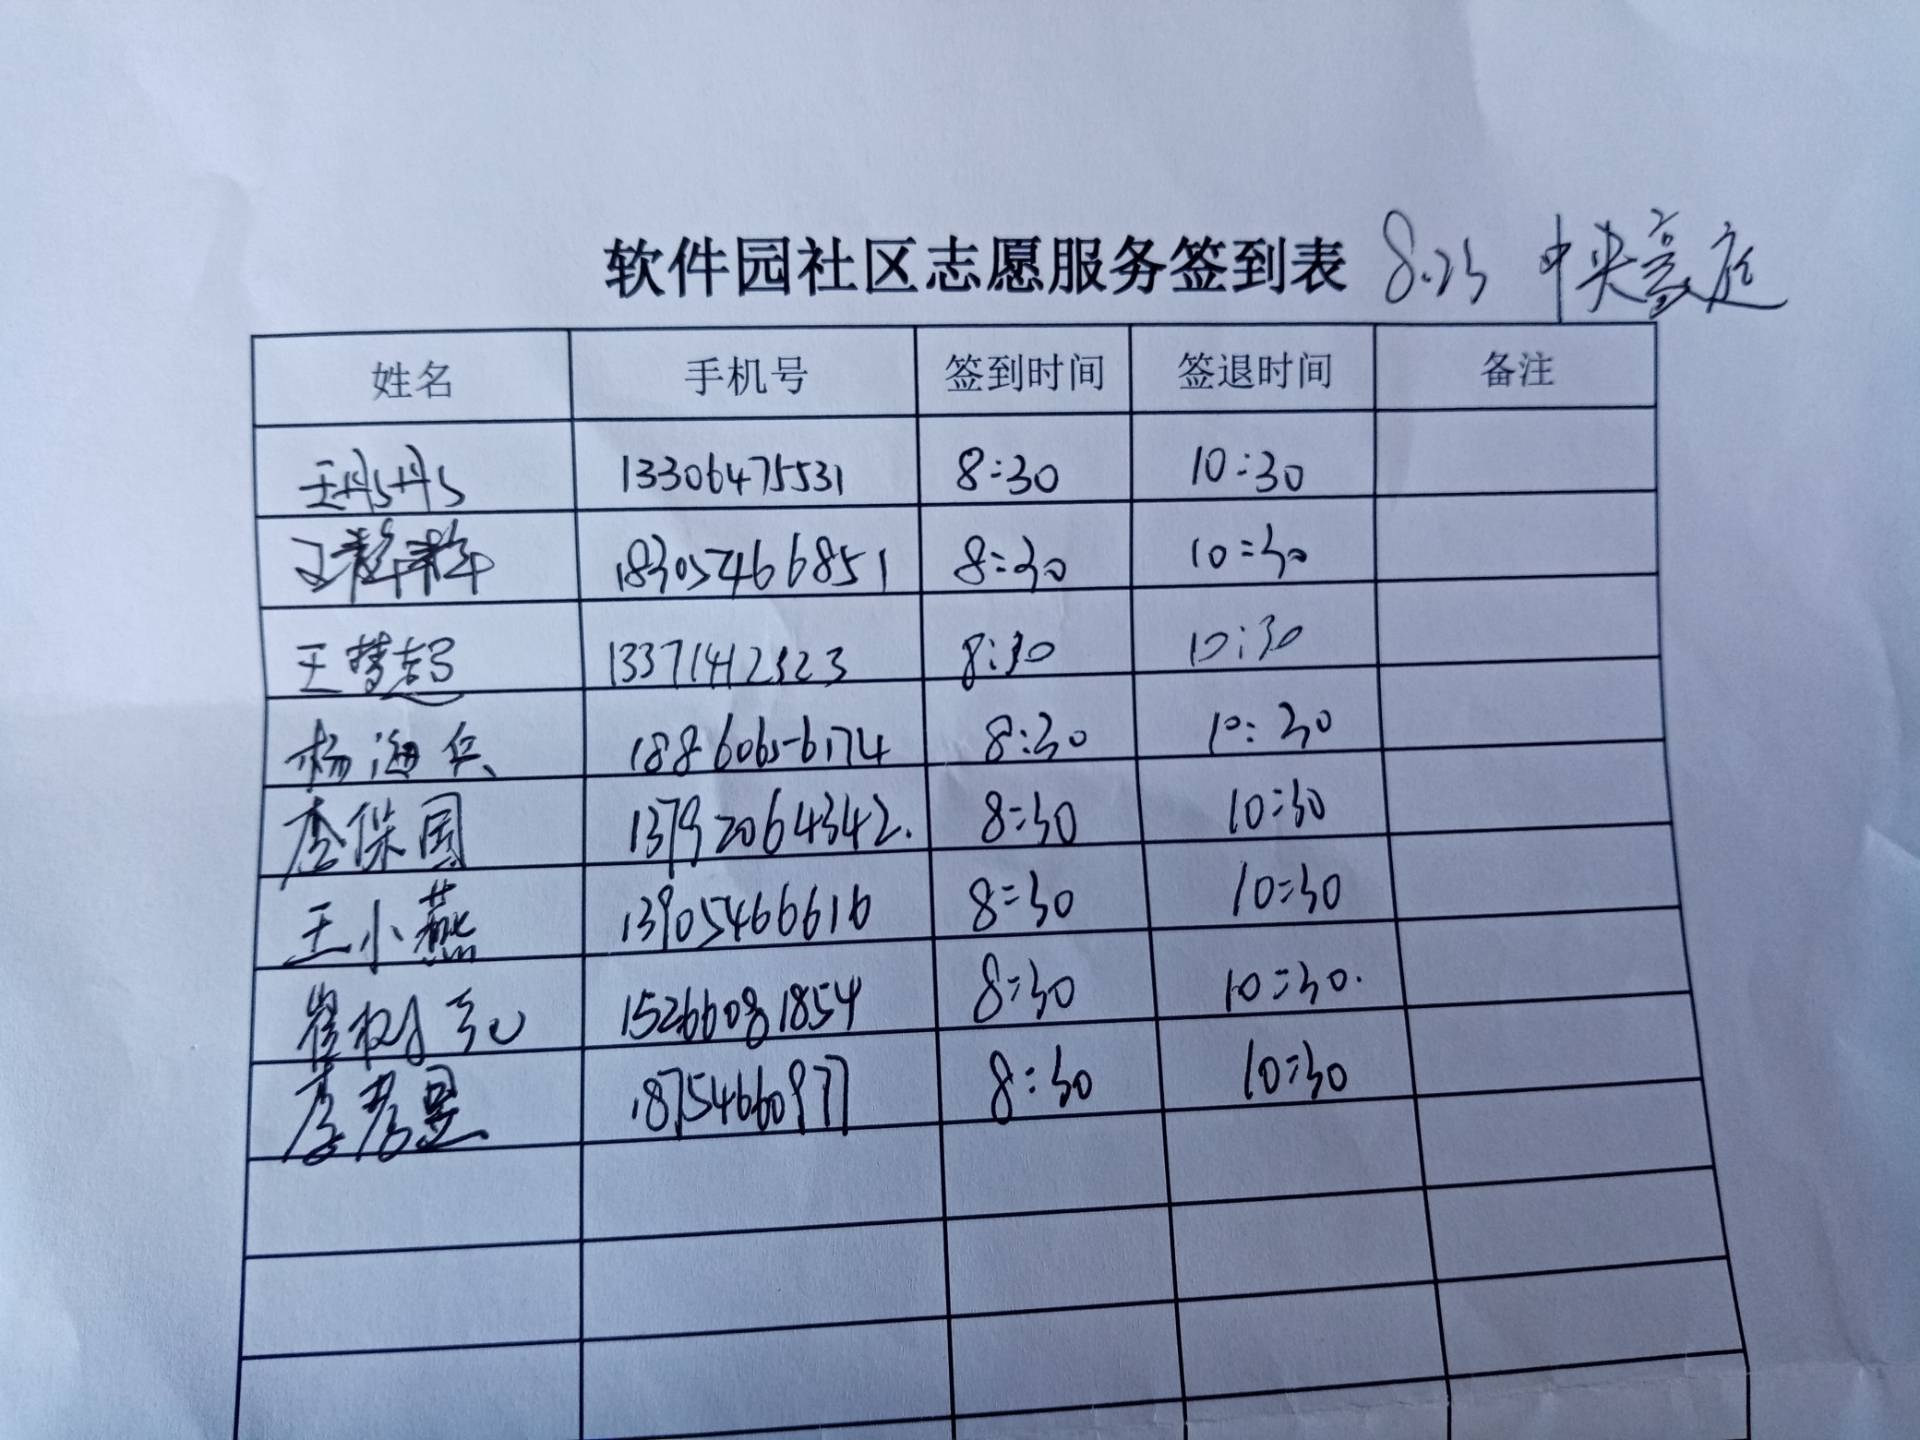 软件园社区志愿服务签到表 8.23 中央豪庭
姓名 手机号 签到时间 签退时间 备注
王丹丹 13306475531 8:30 10:30
王 18305466851 8:30 10:30
王梦超 13371412323 8:30 10:30
杨海兵 18860656174 8:30 10:30
唐保国 13792064342. 8:30 10:30
王小燕 13905466616 8:30 10:30
崔树亮 15266081854 8:30 10:30.
李 18754660977 8:30 10:30